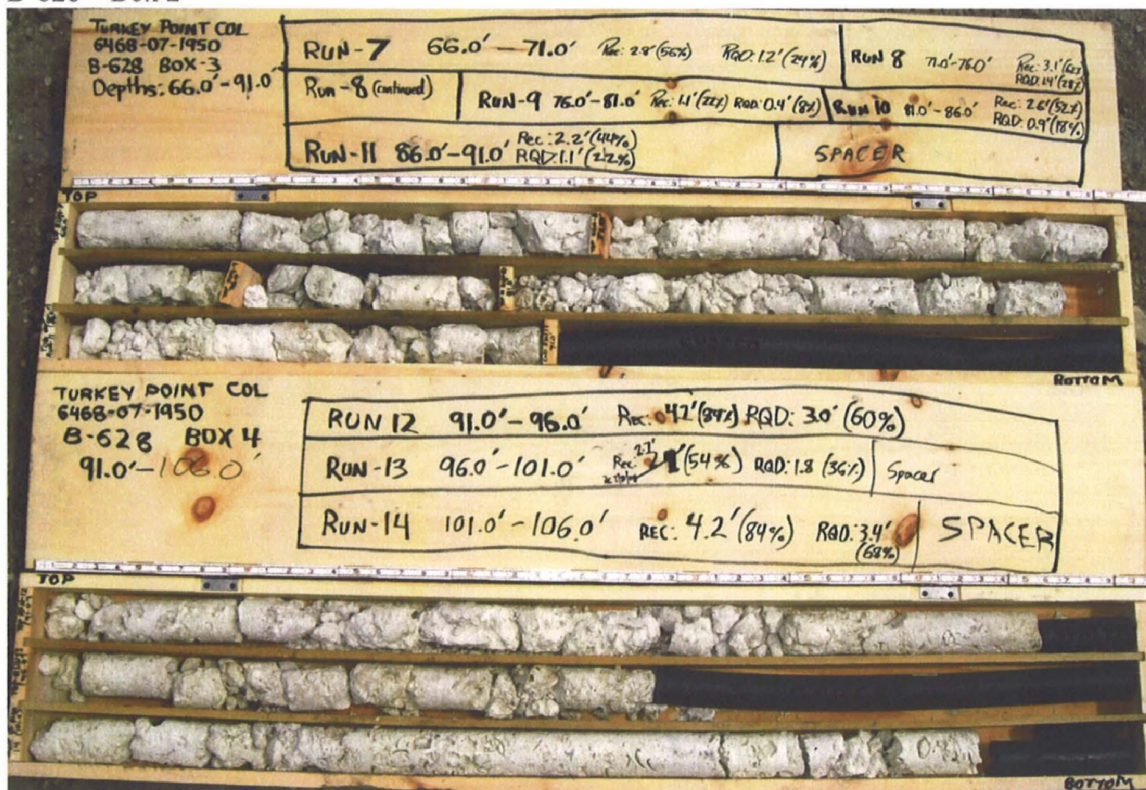 TURKEY POINT COL
6468-07-1950
B-628 BOX-3
Depths: 66.0'-91.0'
RUN-7 66.0'-71.0' Rec: 2.8' (56%) RQD: 1.2' (24%)
RUN 8 71.0'-76.0' Rec: 3.1' (62%)
RQD: 1.4' (28%)
RUN-8 (continued)
RUN-9 76.0'-81.0' Rec: 1.1' (22%) RQD: 0.4' (8%)
RUN 10 81.0'-86.0' Rec: 2.6' (52%)
RQD: 0.9' (18%)
RUN-11 86.0'-91.0' Rec: 2.2' (44%)
RQD: 1.1' (22%)
SPACER
TOP
BOTTOM
TURKEY POINT COL
6468-07-1950
B-628 BOX 4
91.0'-106.0'
RUN 12 91.0'-96.0' Rec: 4.2' (84%) RQD: 3.0' (60%)
RUN-13 96.0'-101.0' Rec: 2.7' (54%) RQD: 1.8 (36%) Spacer
RUN-14 101.0'-106.0' REC: 4.2' (84%) RQD: 3.4'
(68%)
SPACER
TOP
BOTTOM